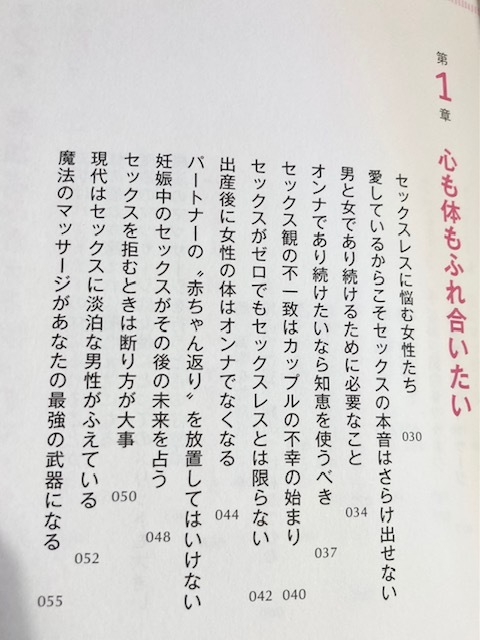 第1章 心も体もふれ合いたい
セックスレスに悩む女性たち 030
愛しているからこそセックスの本音はさらけ出せない
男と女であり続けるために必要なこと 034
オンナであり続けたいなら知恵を使うべき 037
セックス観の不一致はカップルの不幸の始まり 040
セックスがゼロでもセックスレスとは限らない 042
出産後に女性の体はオンナでなくなる 044
パートナーの〝赤ちゃん返り〟を放置してはいけない
妊娠中のセックスがその後の未来を占う 048
セックスを拒むときは断り方が大事 050
現代はセックスに淡泊な男性がふえている 052
魔法のマッサージがあなたの最強の武器になる 055